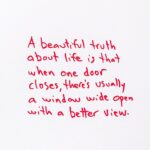 A beautiful truth
about life is that
when one door
closes, there's usually
a window wide open
with a better view.